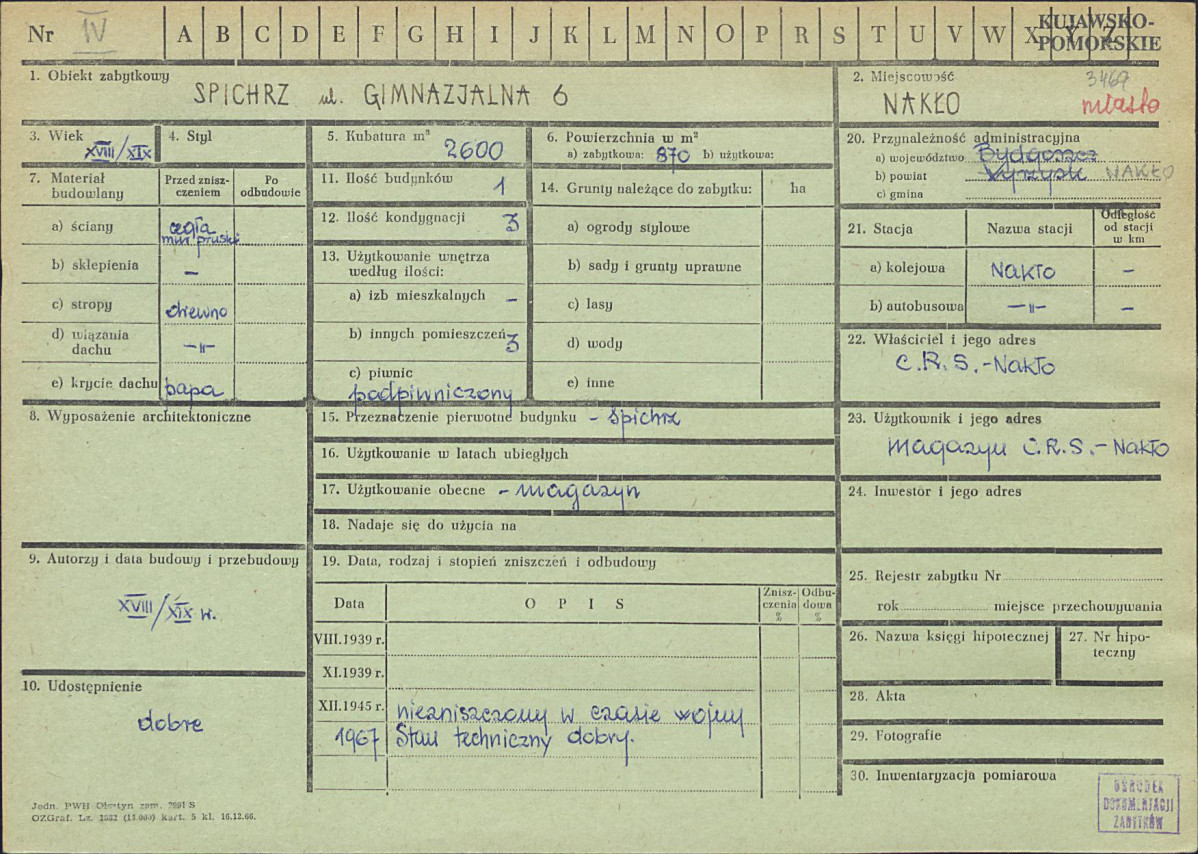 Nr IV A B C D E F G H I J K L M N O P R S T U V W X Y Z KUJAWSKO-
POMORSKIE
1. Obiekt zabytkowy
SPICHRZ ul. GIMNAZJALNA 6
2. Miejscowość
3469
NAKŁO miasto
3. Wiek
XVIII/XIX
4. Styl
5. Kubatura m³
2600
6. Powierzchnia w m²
a) zabytkowa: 870 b) użytkowa:
7. Materiał
budowlany
Przed znisz-
czeniem
Po
odbudowie
a) ściany cegła
mur pruski
b) sklepienia –
c) stropy drewno
d) wiązania
dachu –"–
e) krycie dachu papa
8. Wyposażenie architektoniczne
9. Autorzy i data budowy i przebudowy
XVIII/XIX w.
10. Udostępnienie
dobre
11. Ilość budynków 1
12. Ilość kondygnacji 3
13. Użytkowanie wnętrza
według ilości:
a) izb mieszkalnych –
b) innych pomieszczeń 3
c) piwnic
podpiwniczony
14. Grunty należące do zabytku: ha
a) ogrody stylowe
b) sady i grunty uprawne
c) lasy
d) wody
e) inne
15. Przeznaczenie pierwotne budynku – spichrz
16. Użytkowanie w latach ubiegłych
17. Użytkowanie obecne – magazyn
18. Nadaje się do użycia na
19. Data, rodzaj i stopień zniszczeń i odbudowy
Data OPIS Znisz-
czenia
% Odbu-
dowa
%
VIII.1939 r.
XI.1939 r.
XII.1945 r. niezniszczony w czasie wojny
1967 Stan techniczny dobry.
20. Przynależność administracyjna
a) województwo Bydgoszcz
b) powiat Wyrzysk NAKŁO
c) gmina
21. Stacja Nazwa stacji Odległość
od stacji
w km
a) kolejowa NAKŁO –
b) autobusowa –"– –
22. Właściciel i jego adres
C.R.S.-Nakło
23. Użytkownik i jego adres
magazyn C.R.S.-Nakło
24. Inwestor i jego adres
25. Rejestr zabytku Nr
rok miejsce przechowywania
26. Nazwa księgi hipotecznej
27. Nr hipo-
teczny
28. Akta
29. Fotografie
30. Inwentaryzacja pomiarowa
OŚRODEK
DOKUMENTACJI
ZABYTKÓW
Jedn. PWH Olsztyn zam. 2991 S
OZGraf. Lz. 1332 (15.000) kart. 5 kl. 16.12.66.